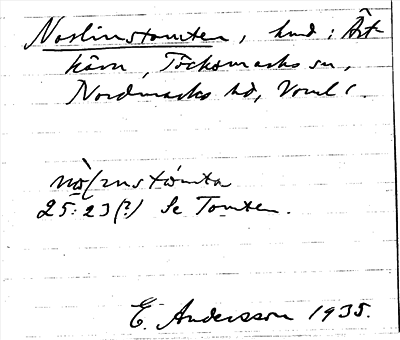 Noslinstomten, hmd: Årt-
kärn, Töcksmarks sn,
Nordmarks hd, Vrml l.
25:23(?) Se Tomten.
E. Andersson 1935.